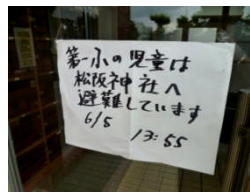 第一小の児童は
松阪神社へ
避難しています
6/5 13:55